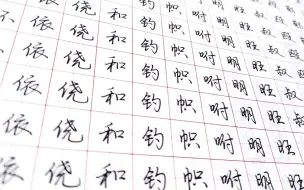 依 绕 和 钓 帜 咐 明 旺 叔
不 依 绕 和 钓 帜 咐 明 旺 叔
依 绕 和 钓 帜 咐 明 旺 叔
依 绕 和 钓 帜 咐 明 旺 叔
依 绕 和 钓 帜 咐 明 旺
依 绕 和 钓 帜 咐 明 旺